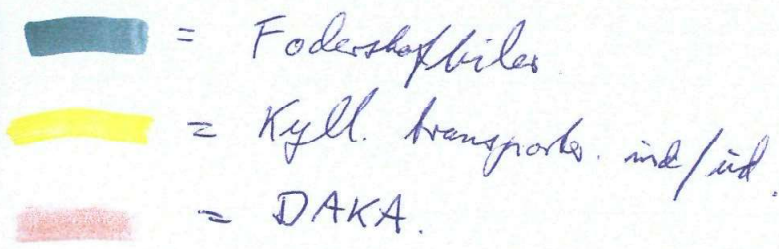 = Foderstofbiler
= Kyll. transporter. ind/ud.
= DAKA.